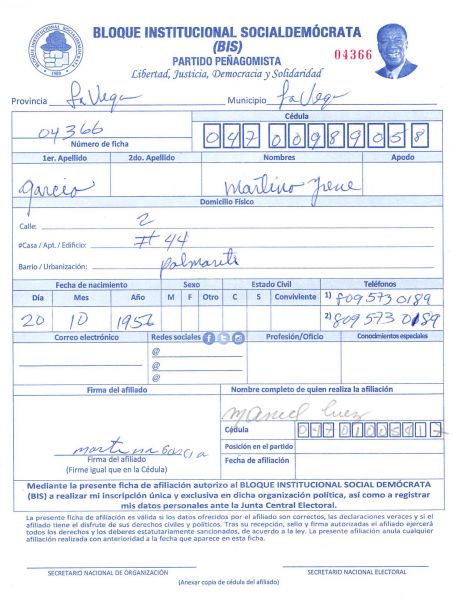 BLOQUE INSTITUCIONAL SOCIALDEMÓCRATA
(BIS)
PARTIDO PEÑAGOMISTA
Libertad, Justicia, Democracia y Solidaridad
04366
Provincia La Vega Municipio La Vega
04366
Número de ficha
Cédula
047 0098905 8
1er. Apellido 2do. Apellido Nombres Apodo
Garcia Martino Irene
Domicilio Físico
Calle: 2
#Casa / Apt. / Edificio: # 44
Barrio / Urbanización: Palmarito
Fecha de nacimiento Sexo Estado Civil Teléfonos
Día Mes Año M F Otro C S Conviviente 1) 809 573 0189
20 10 1956 2) 809 573 0189
Correo electrónico Redes sociales Profesión/Oficio Conocimientos especiales
@
@
@
Firma del afiliado Nombre completo de quien realiza la afiliación
Manuel
Cédula
Posición en el partido
Fecha de afiliación
Garcia
Firma del afiliado
(Firme igual que en la Cédula)
Mediante la presente ficha de afiliación autorizo al BLOQUE INSTITUCIONAL SOCIAL DEMÓCRATA
(BIS) a realizar mi inscripción única y exclusiva en dicha organización política, así como a registrar
mis datos personales ante la Junta Central Electoral.
La presente ficha de afiliación es válida si los datos ofrecidos por el afiliado son correctos, las declaraciones veraces y si el
afiliado tiene el disfrute de sus derechos civiles y políticos. Tras su recepción, sello y firma autorizadas el afiliado ejercerá
todos los derechos y los deberes estatutariamente sancionados, de acuerdo a la ley. La presente afiliación anula cualquier
afiliación realizada con anterioridad a la fecha que aparece en esta ficha.
SECRETARIO NACIONAL DE ORGANIZACIÓN SECRETARIO NACIONAL ELECTORAL
(Anexar copia de cédula del afiliado)